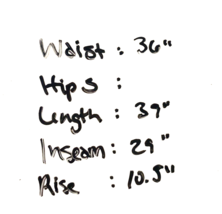 Waist : 36"
Hips :
Length : 39"
Inseam : 29"
Rise : 10.5"